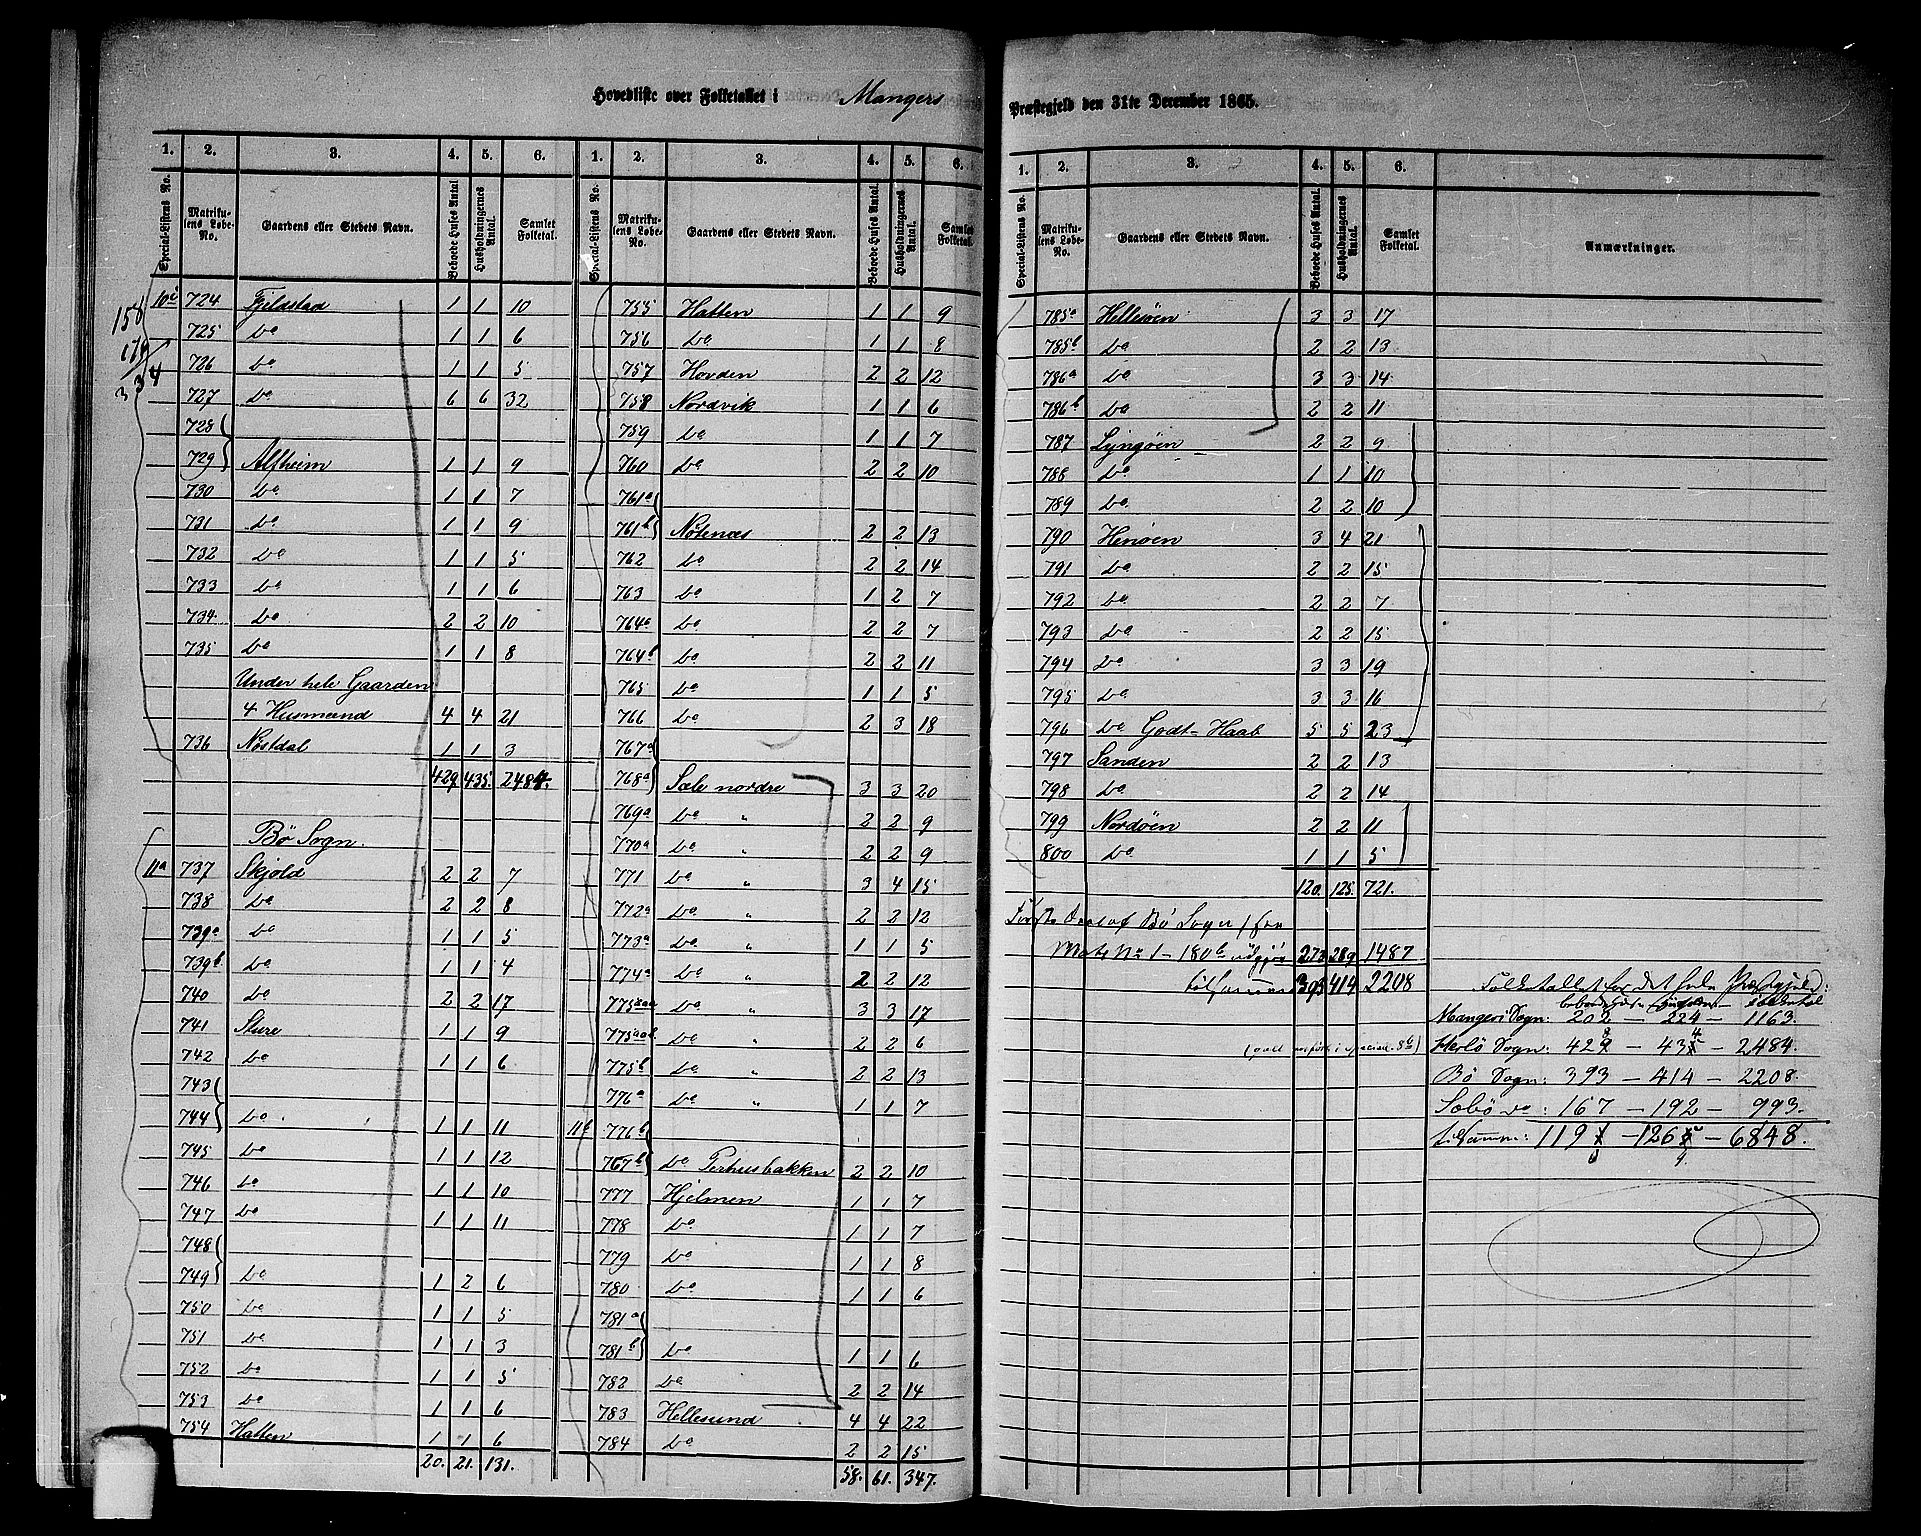 Hovedliste over Folketallet i Mangers Præstegjeld den 31te December 1865.
1. 2. 3. 4. 5. 6. 1. 2. 3. 4. 5. 6.
Special-Listens No. Matrikulens Løbe-No. Gaardens eller Stedets Navn. Beboede Huses Antal Husholdningernes Antal. Samlet Folketal. Special-Listens No. Matrikulens Løbe-No. Gaardens eller Stedets Navn. Beboede Huses Antal. Husholdningernes Antal. Samlet Folketal.
158
10c 724 Fjeldstad 1 1 10
725 Do 1 1 6
726 Do 1 1 5
727 Do 6 6 32
728
729 Alfheim 1 1 9
730 Do 1 1 7
731 Do 1 1 9
732 Do 1 1 5
733 Do 1 1 6
734 Do 2 2 10
735 Do 1 1 8
Under hele Gaarden
4 Husmænd 4 4 21
736 Nøstdal 1 1 3
429. 435. 2484.
Bø Sogn.
11a 737 Skjold 2 2 7
738 Do 2 2 8
739a Do 1 1 5
739b Do 1 1 4
740 Do 2 2 17
741 Sture 1 1 9
742 Do 1 1 6
743
744 Do 1 1 11
745 Do 1 1 12
746 Do 1 1 10
747 Do 1 1 11
748
749 Do 1 2 6
750 Do 1 1 5
751 Do 1 1 3
752 Do 1 1 5
753 Do 1 1 6
754 Hatten 1 1 6
20. 21. 131.
755 Hatten 1 1 9
756 Do 1 1 8
757 Hovden 2 2 12
758 Nordvik 1 1 6
759 Do 1 1 7
760 Do 2 2 10
761a
761b Nøtenæs 2 2 13
762 Do 2 2 14
763 Do 1 2 7
764a Do 2 2 7
764b Do 2 2 11
765 Do 1 1 5
766 Do 2 3 18
767a
768a Sæle nordre 3 3 20
769a Do " 2 2 9
770a Do " 2 2 9
771 Do " 3 4 15
772a Do " 2 2 12
773a Do " 1 1 5
774a Do " 2 2 12
775aaa Do " 3 3 17
775aab Do " 2 2 6
775b Do " 2 2 13
776a Do " 1 1 7
11b 776b
767b Do Perhusbakken 2 2 10
777 Hjelmen 1 1 7
778 Do 1 1 7
779 Do 1 1 8
780 Do 1 1 6
781a
781b Do 1 1 6
782 Do 2 2 14
783 Hellesund 4 4 22
784 Do 2 2 15
58. 61. 347.
1. 2. 3. 4. 5. 6.
Special-Listens No. Matrikulens Løbe-No. Gaardens eller Stedets Navn. Beboede Huses Antal. Husholdningernes Antal. Samlet Folketal. Anmærkninger.
785a Hellesøen 3 3 17
785b Do 2 2 13
786a Do 3 3 14
786b Do 2 2 11
787 Lyngøen 2 2 9
788 Do 1 1 10
789 Do 2 2 10
790 Henøen 3 4 21
791 Do 2 2 15
792 Do 2 2 7
793 Do 2 2 15
794 Do 3 3 19
795 Do 3 3 16
796 Do Godt-Haab 5 5 23
797 Sanden 2 2 13
798 Do 2 2 14
799 Nordøen 2 2 11
800 Do 1 1 5
120. 125. 721.
Første Deel af Bø Sogn, fra
Matr No 1-180b udgjør 273 289 1487
tilsammen 393 414 2208
Folketallet for det hele Præstgjeld:
Mangers Sogn: 202 - 224 - 1163.
Herlø Sogn: 429 - 435 - 2484.
Bø Sogn: 393 - 414 - 2208.
Sæbø Do: 167 - 192 - 993.
tilsamm: 1191 - 1265 - 6848.